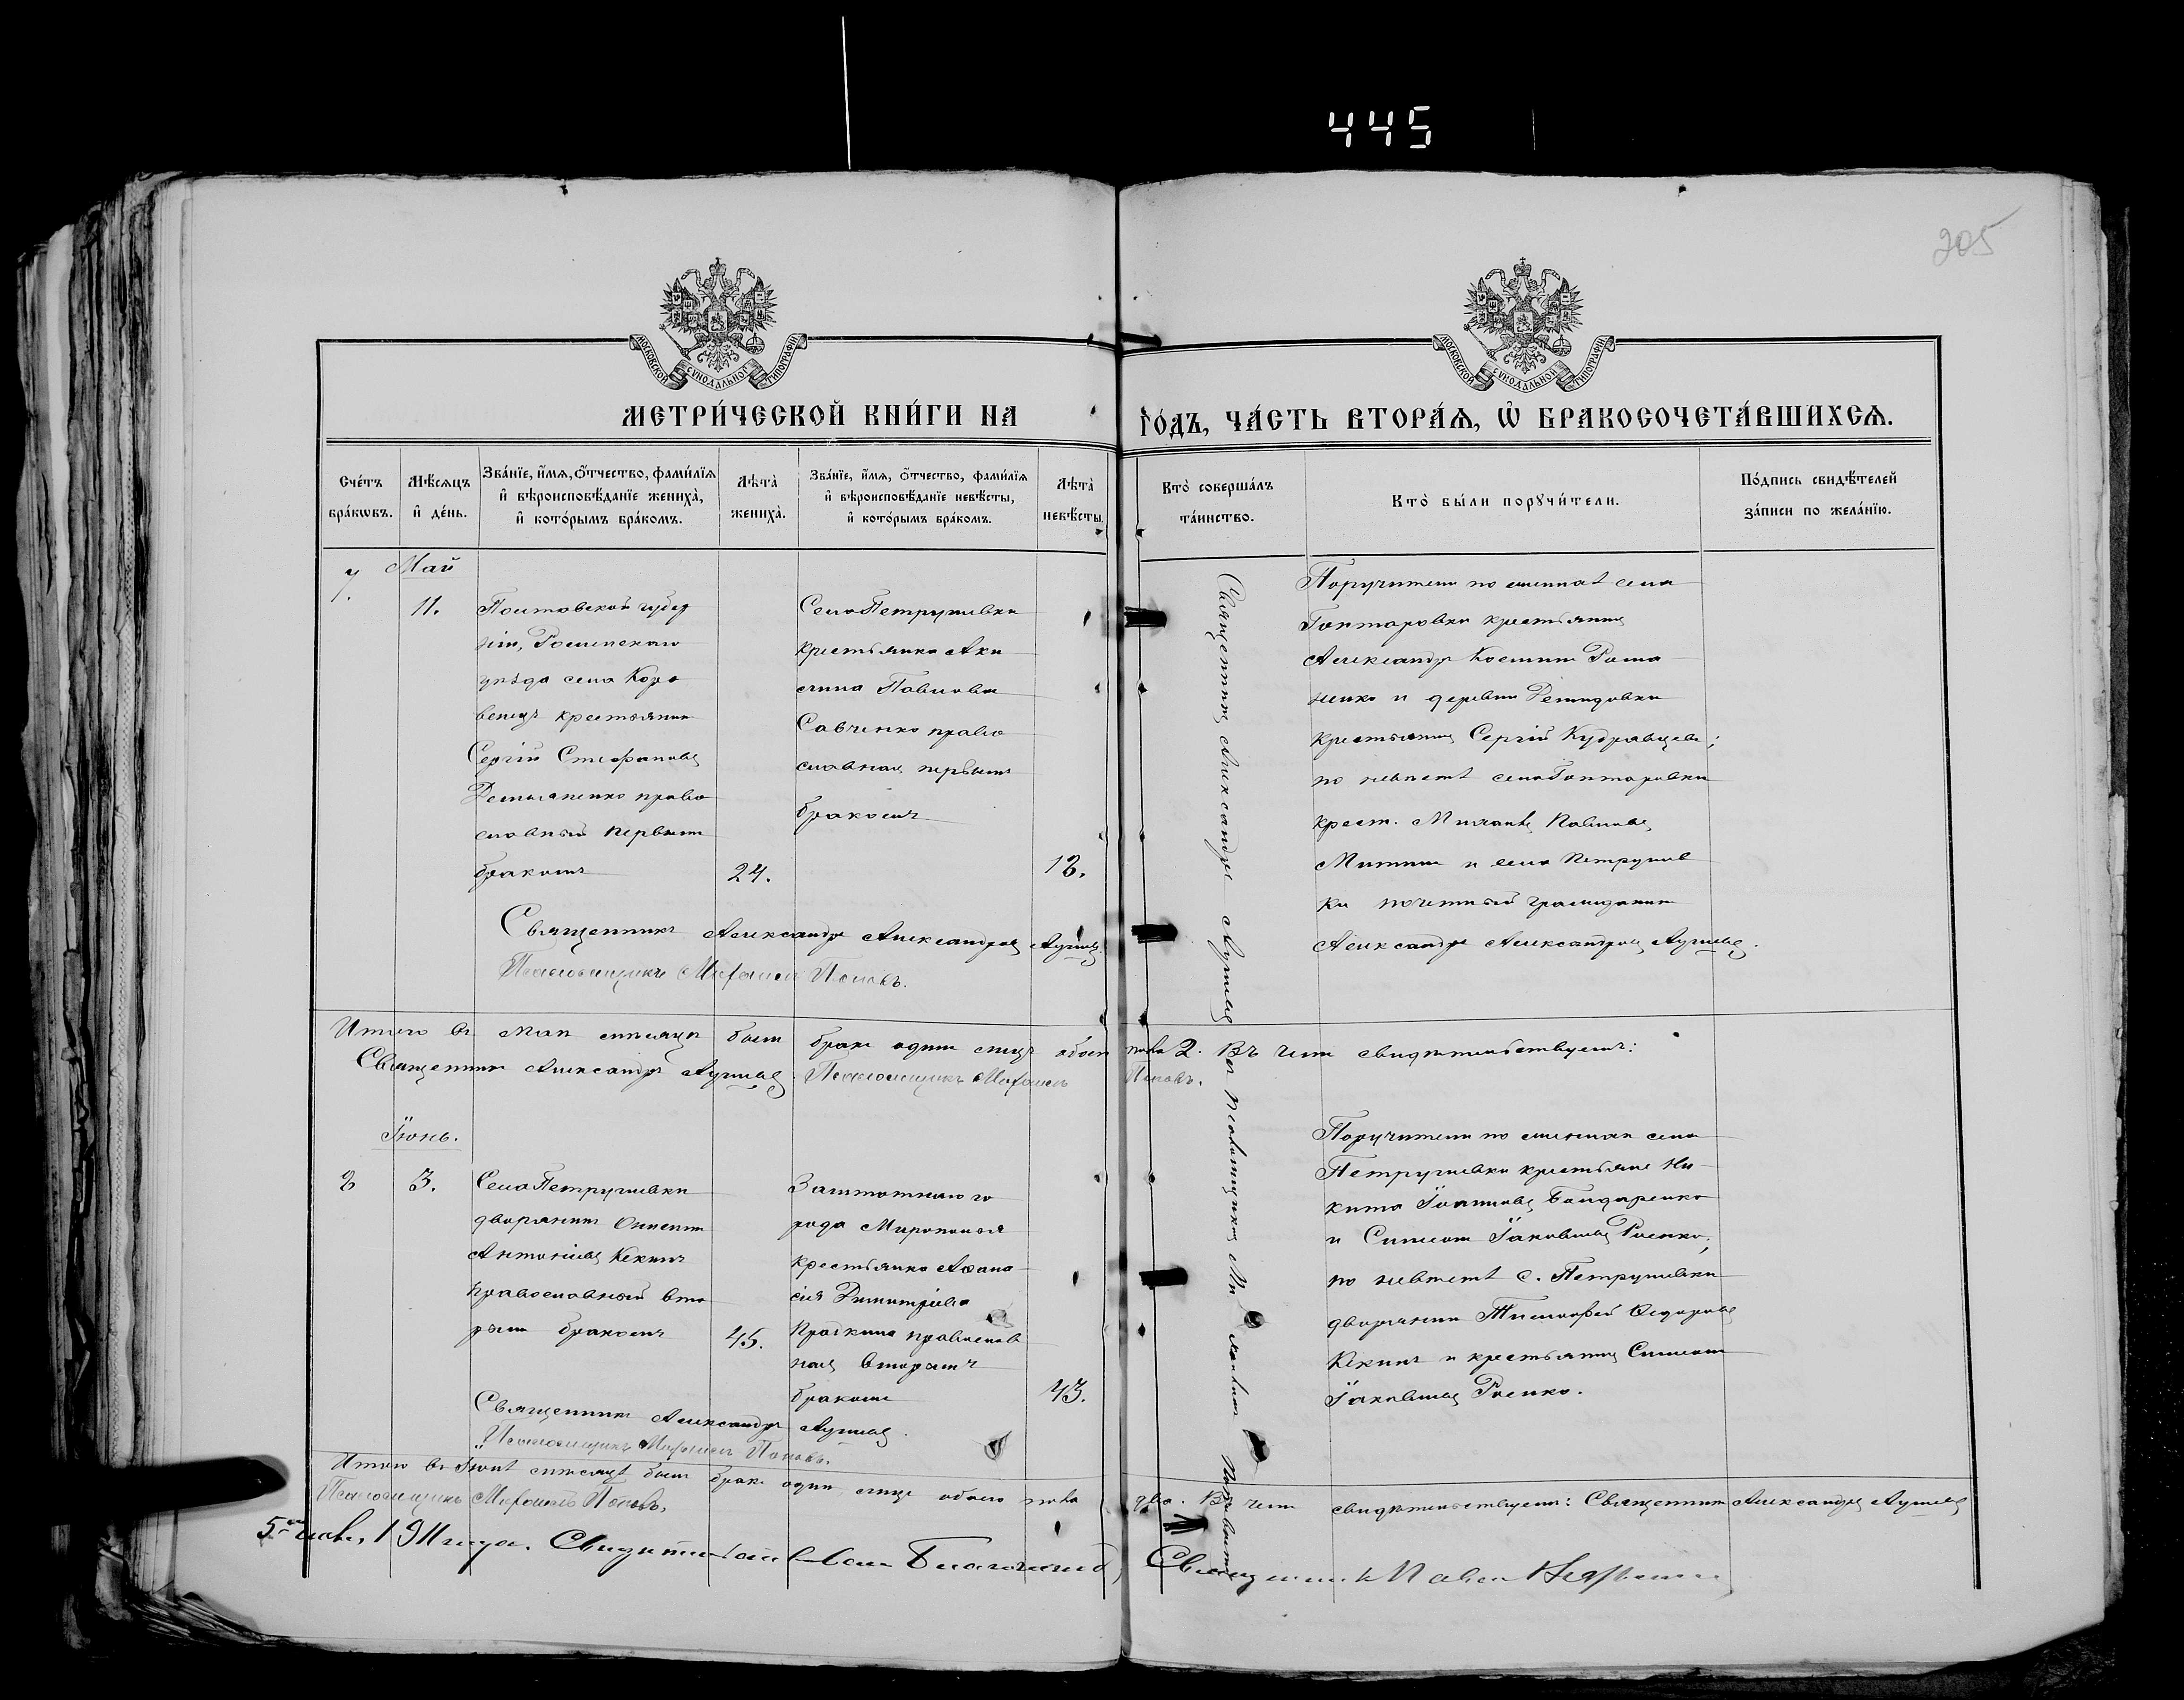 445
205
МОСКОВСКОЙ СУНОДАЛЬНОЙ ТИПОГРАФІИ
МОСКОВСКОЙ СУНОДАЛЬНОЙ ТИПОГРАФІИ
МЕТРИ́ЧЕСКОЙ КНИ́ГИ НА ГО́ДЪ, ЧА́СТЬ ВТОРА́Я, Ѡ҆ БРАКОСОЧЕТА́ВШИХСЯ.
Сче́тъ бра́кѡвъ.
Мѣ́сяцъ и҆ де́нь.
Зва́нїе, и҆́мя, ѻ҆́тчество, фами́лїя и҆ вѣроисповѣ́данїе жениха̀, и҆ кото́рымъ бра́комъ.
Лѣта̀ жениха̀.
Зва́нїе, и҆́мя, ѻ҆́тчество, фами́лїя и҆ вѣроисповѣ́данїе невѣ́сты, и҆ кото́рымъ бра́комъ.
Лѣта̀ невѣ́сты.
Кто̀ соверша́лъ та́инство.
Кто̀ бы́ли порꙋчи́тели.
По́дпись свидѣ́телей за́писи по жела́нїю.
7.
Май
11.
Полтавской губер
ніи, Роменскаго
уѣзда села Коро
венецъ крестьянинъ
Сергій Стефановъ
Демьяненко право
славный первымъ
бракомъ
24.
Села Петрушевки
крестьянка Аки
лина Павлова
Савченко право
славная первымъ
бракомъ
18.
Священникъ Александръ
Поручители по женихѣ села
Гонтаровки крестьянинъ
Александръ Косминъ Рома
ненко и деревни Демидовки
крестьянинъ Сергій Кудрявцевъ;
по невѣстѣ села Гонтаровки
крест. Михаилъ Павловъ
и села Петрушев
ки почетный гражданинъ
Александръ Александровъ
Священникъ Александръ Александровъ
Псаломщикъ Михаилъ Поповъ.
Итого въ маѣ мѣсяцѣ былъ бракъ одинъ лицъ обоего пола 2. Въ чемъ свидѣтельствуемъ:
Священникъ Александръ Псаломщикъ Михаилъ Поповъ.
Іюнь.
8
3.
Села Петрушевки
дворянинъ
Антоніевъ Кекинъ
православный вто
рымъ бракомъ
45.
Заштатнаго го
рода Мирополья
крестьянка Аѳана
сія Димитріева
православ
ная вторымъ
бракомъ
43.
Поручители по женихѣ села
Петрушевки крестьяне Ни
кита Іоанновъ Бондаренко
и Симеонъ Іаковлевъ
по невѣстѣ с. Петрушевки
дворянинъ Тимофей Ѳедоровъ
Кекинъ и крестьянинъ Симеонъ
Іаковлевъ
Священникъ Александръ
Псаломщикъ Михаилъ Поповъ.
Итого въ Іюнѣ мѣсяцѣ былъ бракъ одинъ лицъ обоего пола два. Въ чемъ свидѣтельствуемъ: Священникъ Александръ
Псаломщикъ Михаилъ Поповъ.
Священникъ Павелъ